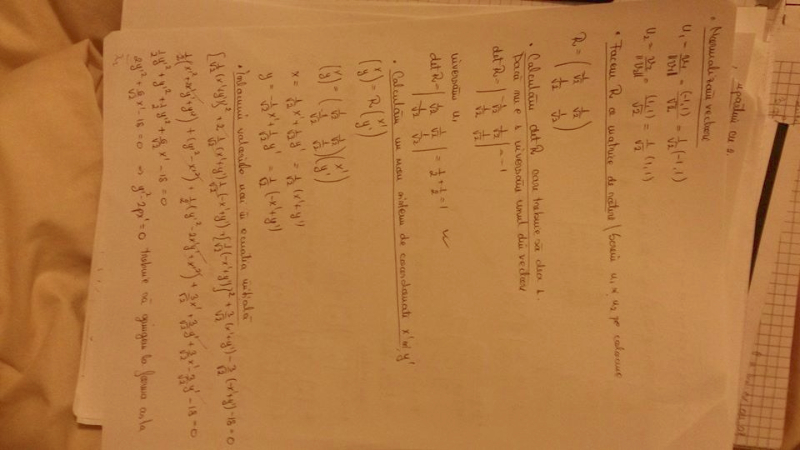 împărțim cu 2.
• Normalizăm vectorii
u₁ = v₁/||v₁|| = (-1,1)/√2 = 1/√2 (-1,1)
u₂ = v₂/||v₂|| = (1,1)/√2 = 1/√2 (1,1)
• Facem R o matrice de rotație / punem u₁ și u₂ pe coloane
R = (-1/√2 1/√2
1/√2 1/√2)
• Calculăm det R, care trebuie să dea 1.
Dacă nu e 1 inversăm unul din vectori
det R = |-1/√2 1/√2
1/√2 1/√2| = -1
inversăm u₁
det R = |1/√2 1/√2
-1/√2 1/√2| = 1/2 + 1/2 = 1 ✓
• Calculăm un nou sistem de coordonate x' și y'
(x
y) = R (x'
y')
(x
y) = (1/√2 1/√2
-1/√2 1/√2) (x'
y')
x = 1/√2 x' + 1/√2 y' = 1/√2 (x'+y')
y = -1/√2 x' + 1/√2 y' = 1/√2 (-x'+y')
• Înlocuim valorile noi în ecuația inițială
[1/√2 (x'+y')]² + 2 · 1/√2 (x'+y') 1/√2 (-x'+y') + [1/√2 (-x'+y')]²
1/2 (x'²+2x'y'+y'²) + (y'²-x'²) + 1/2 (y'²-2x'y'+x'²)
2y'² + x' - 18 = 0 ⇒ y'² - 2px' = 0 trebuie să ajungem la forma asta